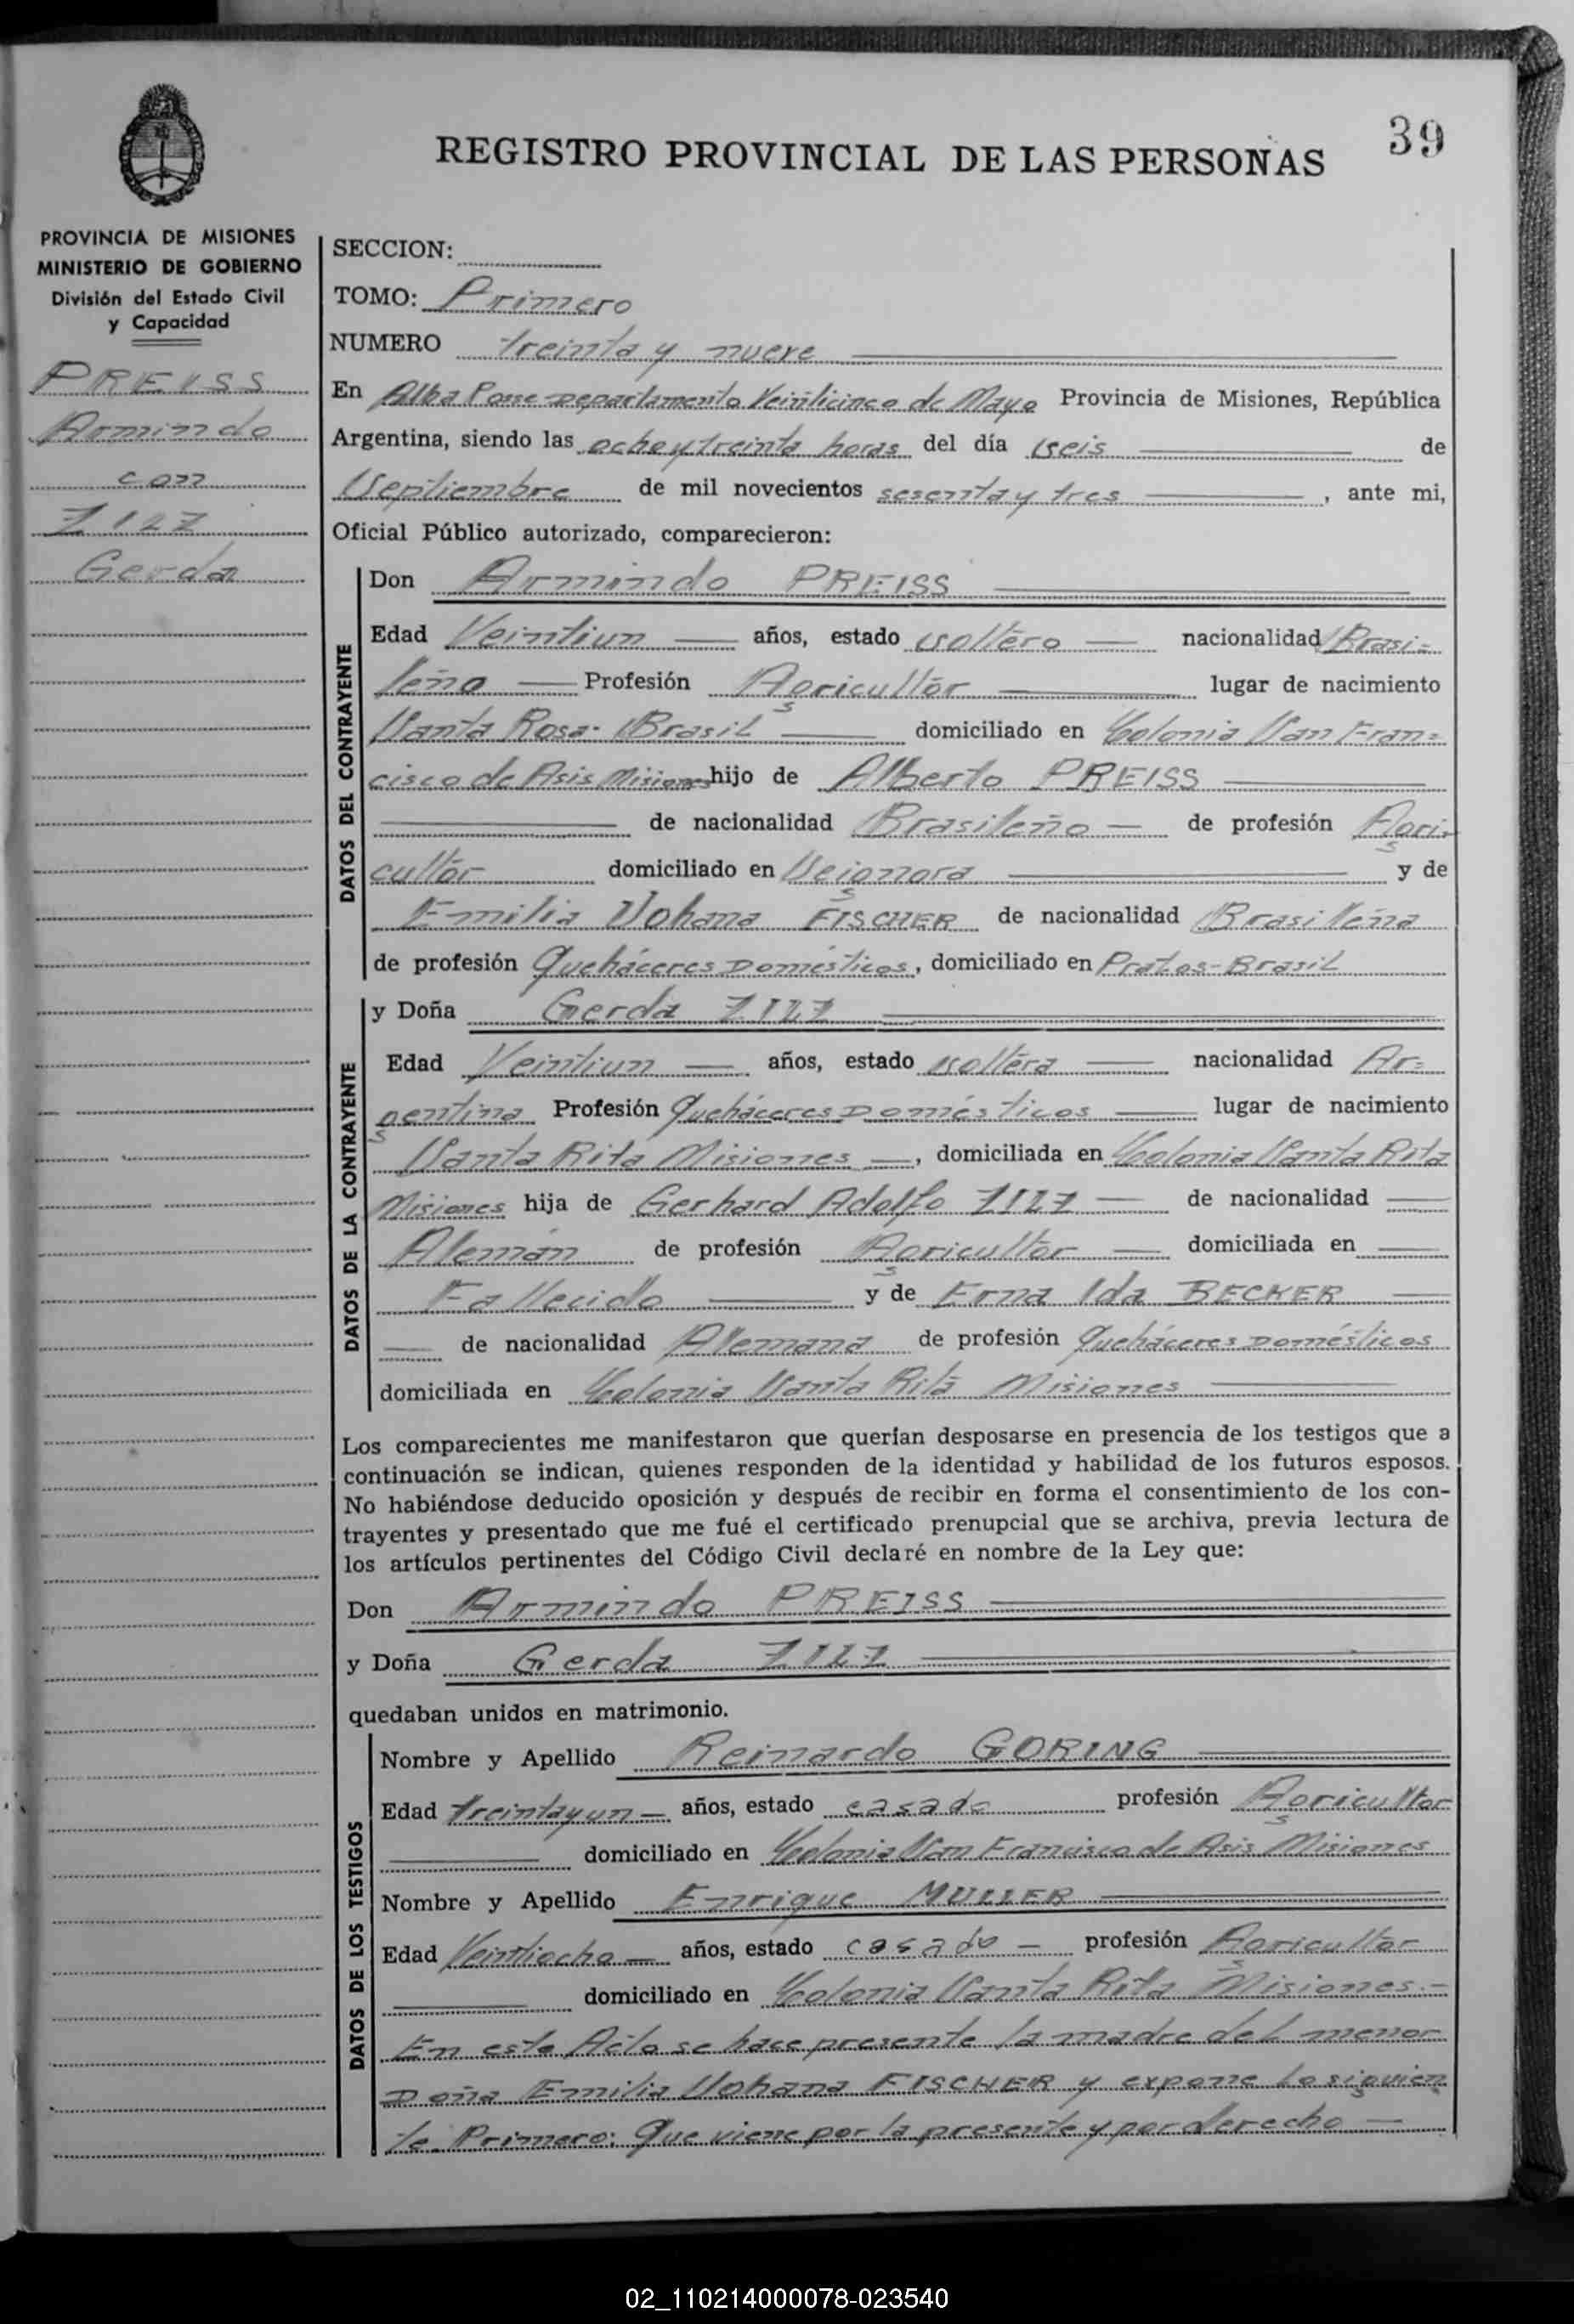 39
REGISTRO PROVINCIAL DE LAS PERSONAS
PROVINCIA DE MISIONES
MINISTERIO DE GOBIERNO
División del Estado Civil
y Capacidad
PREISS
Armindo
con
ZILZ
Gerda
SECCION:
TOMO: Primero
NUMERO treinta y nueve
En Alba Posse Departamento Veinticinco de Mayo Provincia de Misiones, República
Argentina, siendo las ocho y treinta horas del día seis de
Septiembre de mil novecientos sesenta y tres, ante mi,
Oficial Público autorizado, comparecieron:
DATOS DEL CONTRAYENTE
Don Armindo PREISS
Edad Veintiun años, estado soltero nacionalidad Brasi=
leño Profesión Agricultor lugar de nacimiento
Santa Rosa- Brasil domiciliado en Colonia San Fran=
cisco de Asis Misiones hijo de Alberto PREISS
de nacionalidad Brasileño de profesión Agri-
cultor domiciliado en Se ignora y de
Emilia Johana FISCHER de nacionalidad Brasileña
de profesión Queháceres Domésticos, domiciliado en Pratos-Brasil
DATOS DE LA CONTRAYENTE
y Doña Gerda ZILZ
Edad Veintiun años, estado soltera nacionalidad Ar=
gentina Profesión Queháceres Domésticos lugar de nacimiento
Santa Rita Misiones, domiciliada en Colonia Santa Rita
Misiones hija de Gerhard Adolfo ZILZ de nacionalidad
Alemán de profesión Agricultor domiciliada en
Fallecido y de Erna Ida BECKER
de nacionalidad Alemana de profesión Queháceres Domésticos
domiciliada en Colonia Santa Rita Misiones
Los comparecientes me manifestaron que querían desposarse en presencia de los testigos que a
continuación se indican, quienes responden de la identidad y habilidad de los futuros esposos.
No habiéndose deducido oposición y después de recibir en forma el consentimiento de los con-
trayentes y presentado que me fué el certificado prenupcial que se archiva, previa lectura de
los artículos pertinentes del Código Civil declaré en nombre de la Ley que:
Don Armindo PREISS
y Doña Gerda ZILZ
quedaban unidos en matrimonio.
DATOS DE LOS TESTIGOS
Nombre y Apellido Reinardo GORING
Edad treinta y un años, estado casado profesión Agricultor
domiciliado en Colonia San Francisco de Asis Misiones
Nombre y Apellido Enrique MULLER
Edad Veintiocho años, estado casado profesión Agricultor
domiciliado en Colonia Santa Rita Misiones.-
En este Acto se hace presente la madre del menor
Doña Emilia Johana FISCHER y expone lo siguien
te. Primero: Que viene por la presente y por derecho
02_110214000078-023540